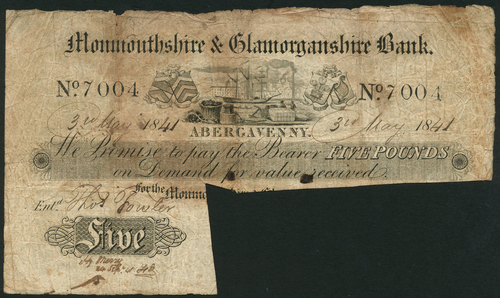 Monmouthshire & Glamorganshire Bank.
No. 7004 No. 7004
3rd May 1841 3rd May 1841
ABERGAVENNY.
We Promise to pay the Bearer FIVE POUNDS
on Demand for value received
For the Monmou
Entd. Thos. Fowler
Five